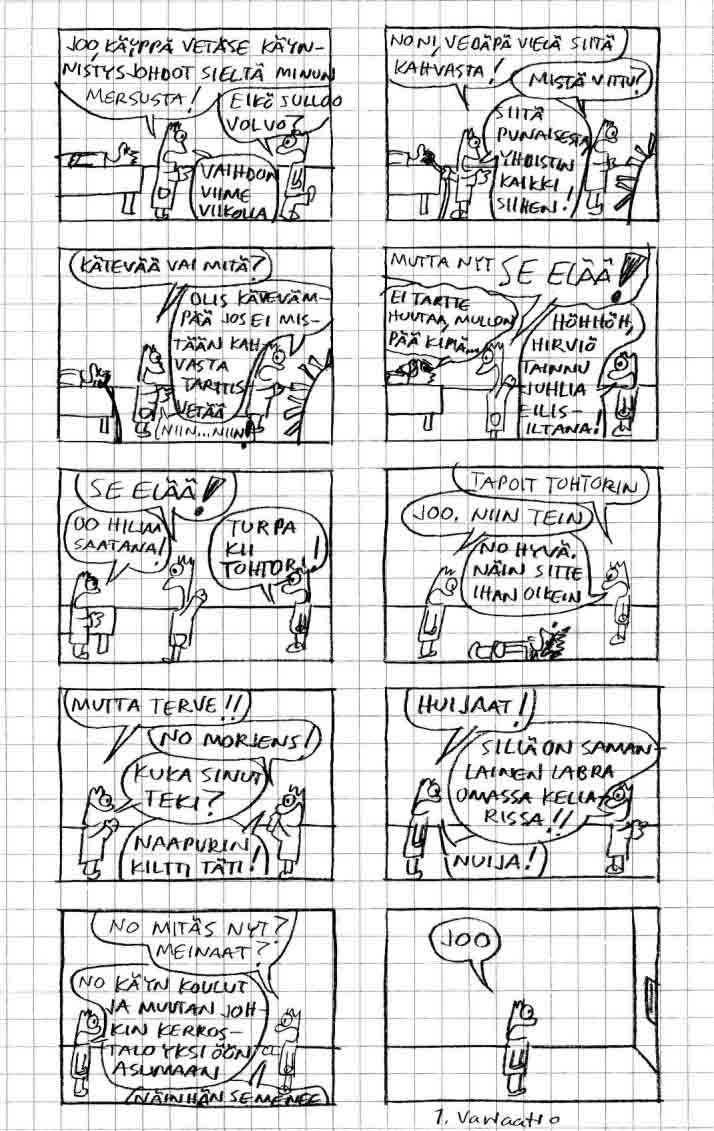 JOO, KÄYPPÄ VETÄSE KÄYN-
NISTYSJOHDOT SIELTÄ MINUN
MERSUSTA!
EIKÖ SULLOO
VOLVO?
VAIHDOIN
VIIME
VIIKOLLA
NO NI, VEDÄPÄ VIELÄ SIITÄ
KAHVASTA!
MISTÄ VITTU?
SIITÄ
PUNAISESTA,
YHDISTIN
KAIKKI
SIIHEN!
KÄTEVÄÄ VAI MITÄ?
OLIS KÄTEVÄM-
PÄÄ JOS EI MIS-
TÄÄN KAH-
VASTA
TARTTIS
VETÄÄ
NIIN...NIIN
MUTTA NYT SE ELÄÄ!
EI TARTTE
HUUTAA, MULLON
PÄÄ KIPIÄ...
HÖHHÖH,
HIRVIÖ
TAINNU
JUHLIA
EILIS-
ILTANA!
SE ELÄÄ!
OO HILJAA
SAATANA!
TURPA
KII
TOHTORI!
TAPOIT TOHTORIN
JOO. NIIN TEIN
NO HYVÄ.
NÄIN SITTE
IHAN OIKEIN
MUTTA TERVE!!
NO MORJENS!
KUKA SINUT
TEKI?
NAAPURIN
KILTTI TÄTI!
HUIJAAT!
SILLÄ ON SAMAN-
LAINEN LABRA
OMASSA KELLA-
RISSA!!
NUIJA!
NO MITÄS NYT?
MEINAAT?
NO KÄYN KOULUT
JA MUUTAN JOH-
KIN KERROS-
TALOYKSIÖÖN
ASUMAAN
NÄINHÄN SE MENEE
JOO
1. Variaatio